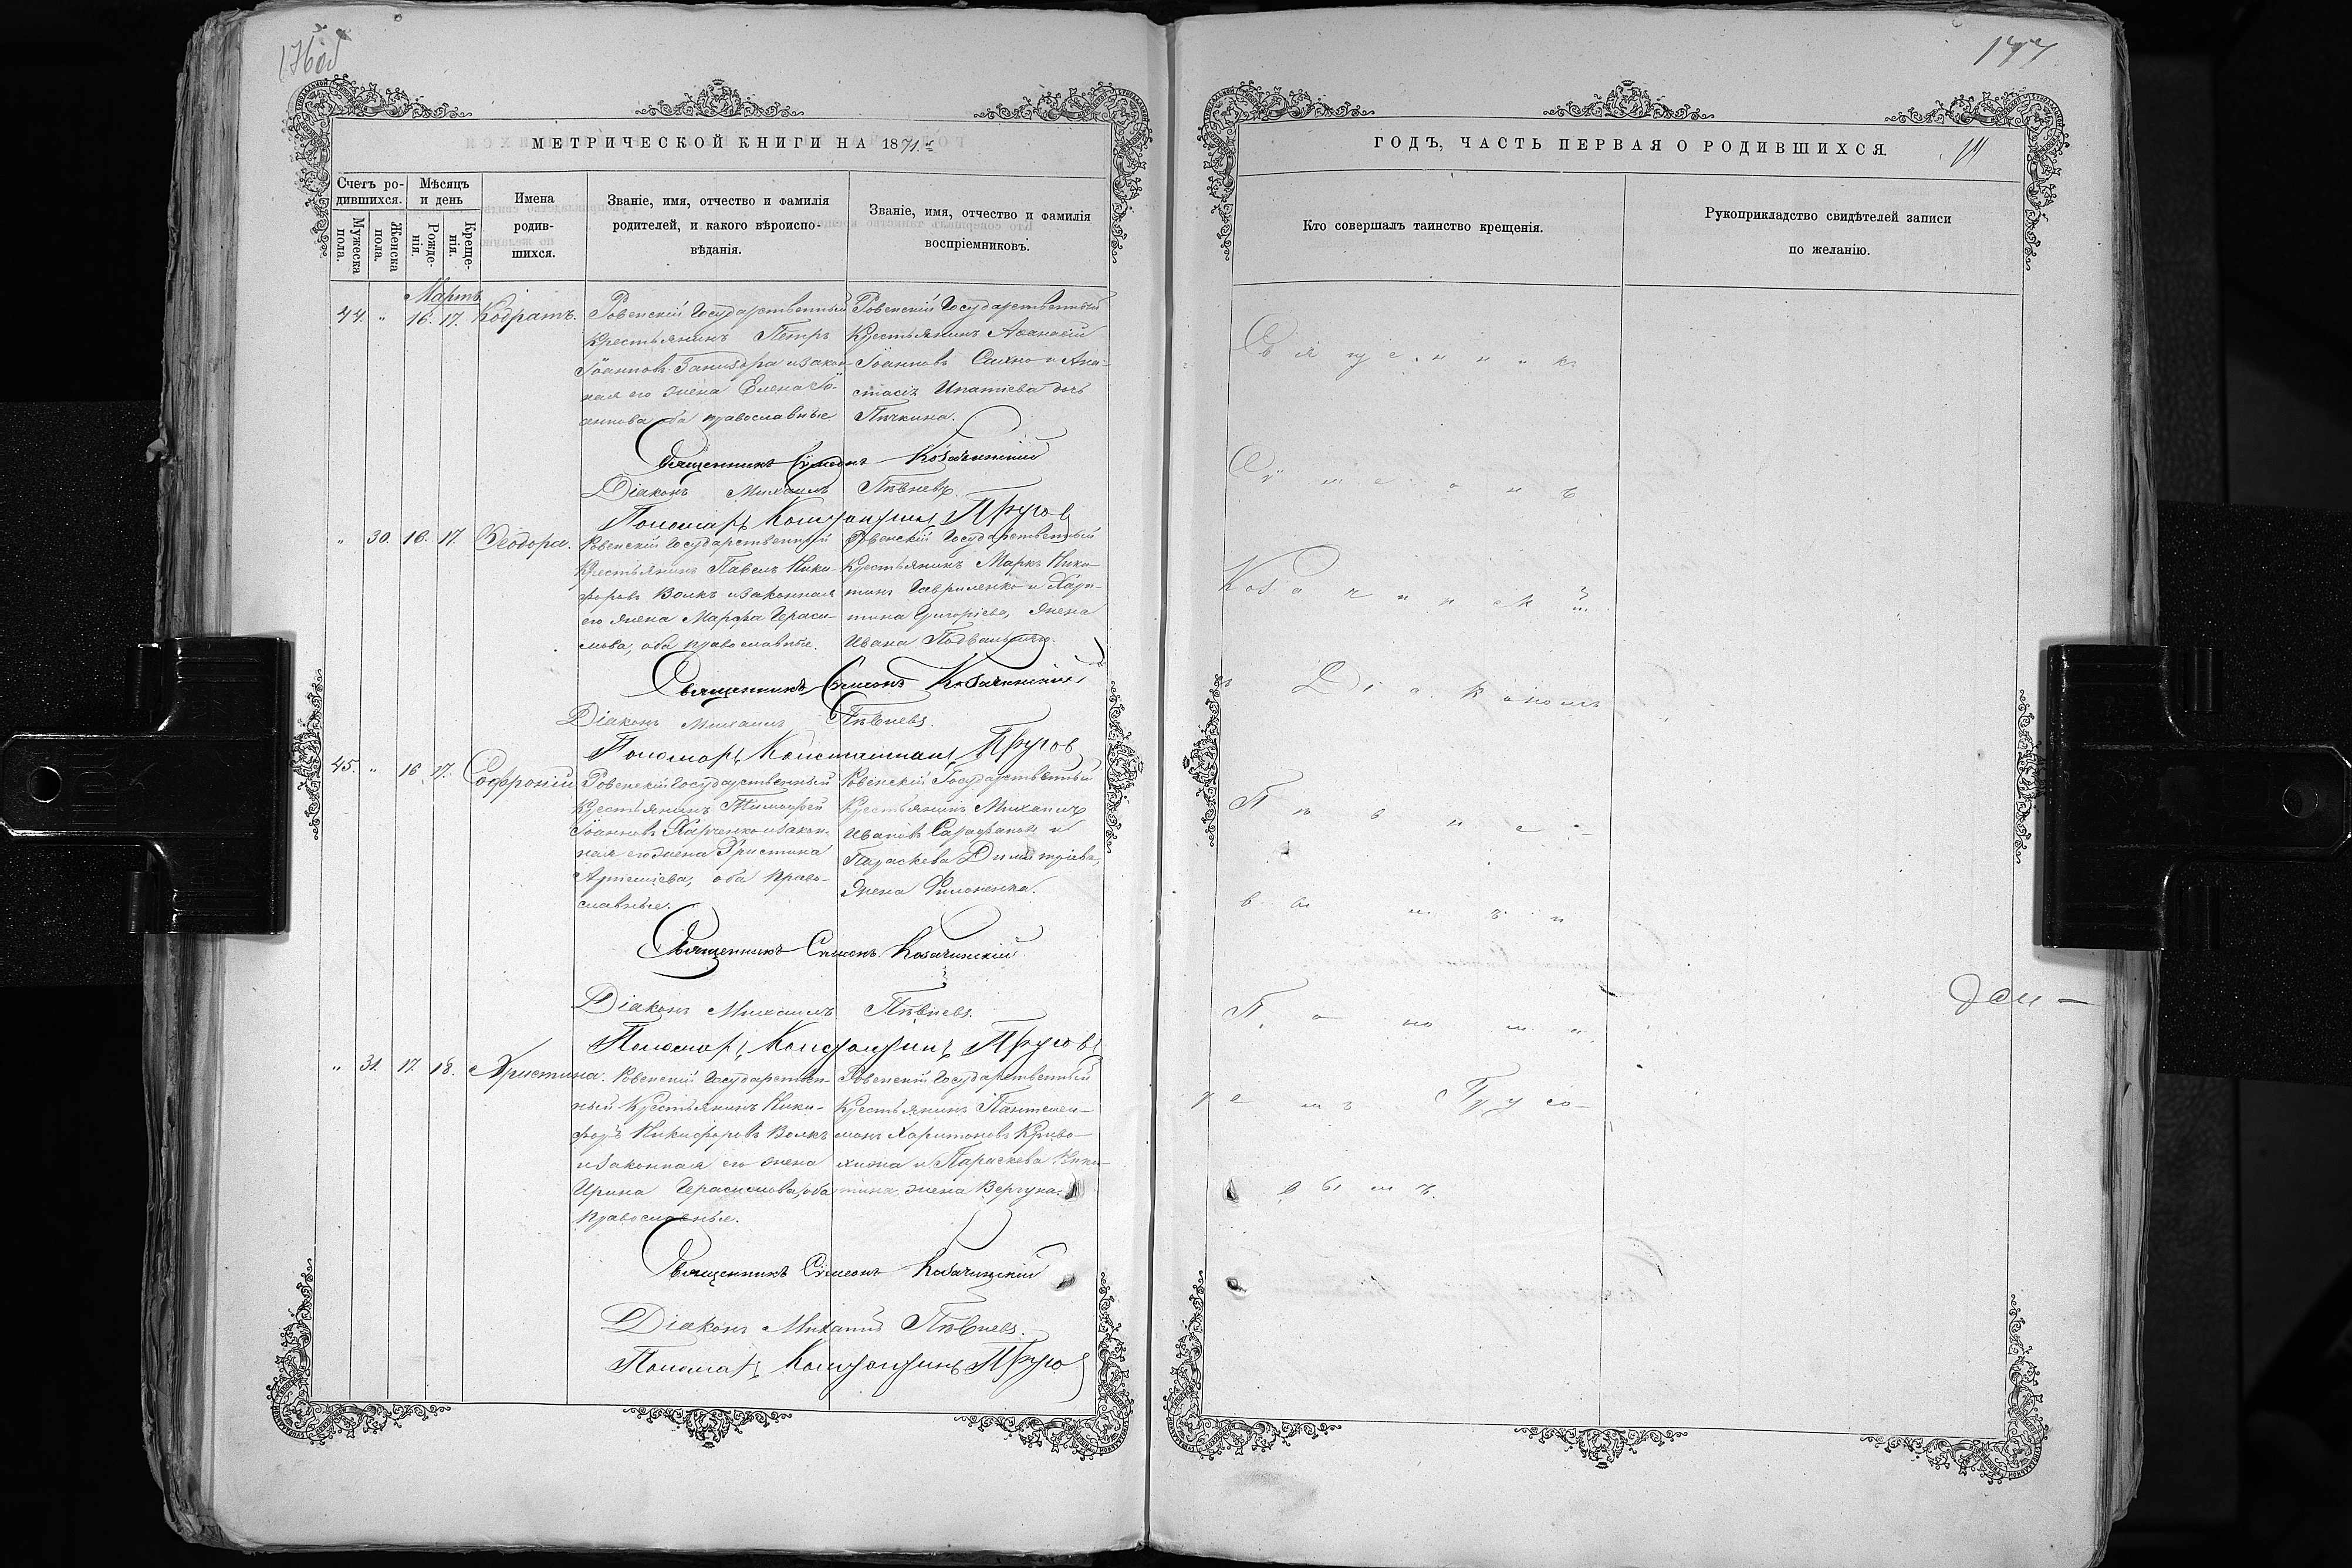 176об
МЕТРИЧЕСКОЙ КНИГИ НА 1871.
Счетъ ро-
дившихся.
Мѣсяцъ
и день
Мужеска
пола.
Женска
пола.
Рожде-
нія.
Креще-
нія.
Имена
родив-
шихся.
Званіе, имя, отчество и фамилія
родителей, и какого вѣроиспо-
вѣданія.
Званіе, имя, отчество и фамилія
воспріемниковъ.
Мартъ
44. " 16. 17. Кодратъ.
Ровенскій Государственный
Крестьянинъ Петръ
Іоанновъ и закон-
ная его жена Елена Іо-
аннова оба православные
Ровенскій Государственный
Крестьянинъ Аѳанасій
Іоанновъ Сахно и Ана-
стасія Ипатіева дочь
Пичкина.
Священникъ Сѵмеонъ Козачинскій
Діаконъ Михаилъ Пѣвневъ.
Пономарь Константинъ Пругов
" 30. 16. 17. Ѳеодора.
Ровенскій Государственный
Крестьянинъ Павелъ Ники-
форовъ Волкъ и законная
его жена Марфа Гераси-
мова, оба православные.
Ровенскій Государственный
Крестьянинъ Маркъ Ники-
тинъ Гавриленко и Хари-
тина Григоріева, жена
Ивана
Священникъ Сѵмеонъ Козачинскій
Діаконъ Михаилъ Пѣвневъ.
Пономарь Константинъ Пругов
45. " 16 17. Софроній
Ровенскій Государственный
Крестьянинъ Тимофей
Іоанновъ Харченко и закон-
ная его жена Христина
Артеміева, оба право-
славные.
Ровенскій Государственный
Крестьянинъ Михаилъ
Ивановъ Сарафановъ и
Параскева Димитріева,
жена Филоненка.
Священникъ Сѵмеонъ Козачинскій
Діаконъ Михаилъ Пѣвневъ.
Пономарь Константинъ Пруговъ
" 31. 17. 18. Христина.
Ровенскій Государствен-
ный Крестьянинъ Ники-
форъ Никифоровъ Волкъ
и законная его жена
Ирина Герасимова, оба
православные.
Ровенскій Государственный
Крестьянинъ Пантелей-
монъ Харитоновъ Криво-
и Параскева Ники-
тина, жена Вергуна.
Священникъ Сѵмеонъ Козачинскій
Діаконъ Михаилъ Пѣвневъ.
Пономарь Константинъ Пругов
177
ГОДЪ, ЧАСТЬ ПЕРВАЯ О РОДИВШИХСЯ.
Кто совершалъ таинство крещенія.
Рукоприкладство свидѣтелей записи
по желанію.
Священникъ
Сѵмеонъ
Козачинскій
съ Діакономъ
Пѣвне-
вымъ и
Понома-
ремъ Пруго-
вымъ.